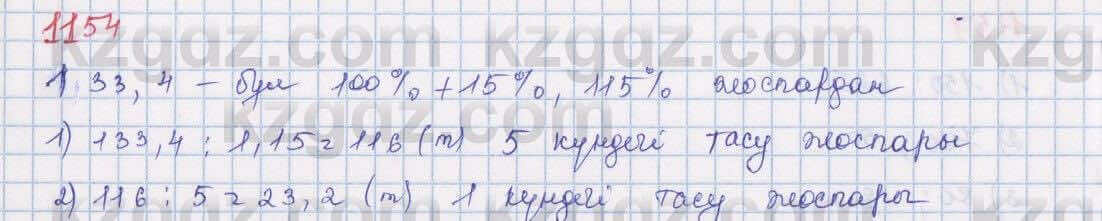 1154
133,4 – бұл 100% + 15%, 115% жоспардан
1) 133,4 : 1,15 = 116 (т) 5 күндегі тасу жоспары
2) 116 : 5 = 23,2 (т) 1 күндегі тасу жоспары
kzgdz.com kzgdz.com kzgdz.com